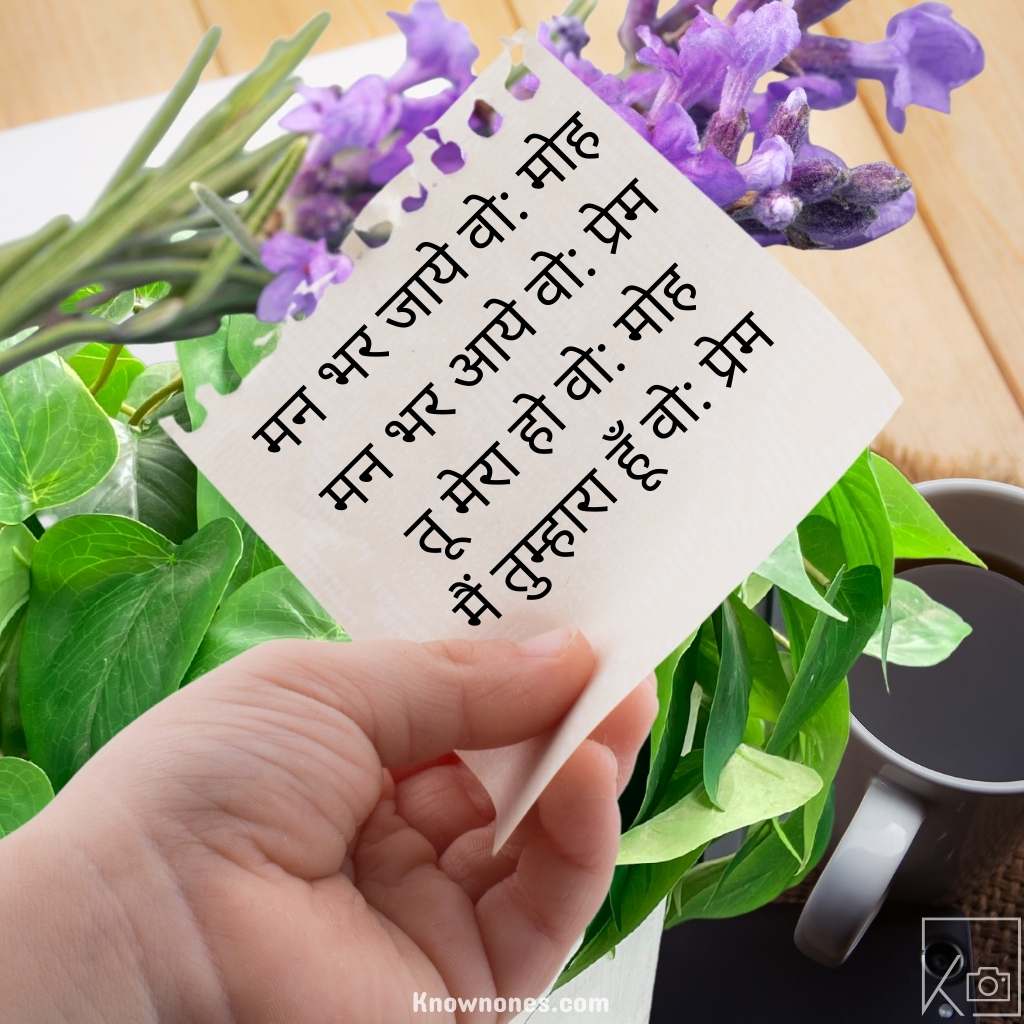 मन भर जाये वो: मोह
मन भर आये वो: प्रेम
तू मेरा हो वो: मोह
मैं तुम्हारा हूँ वो: प्रेम
Knownones.com